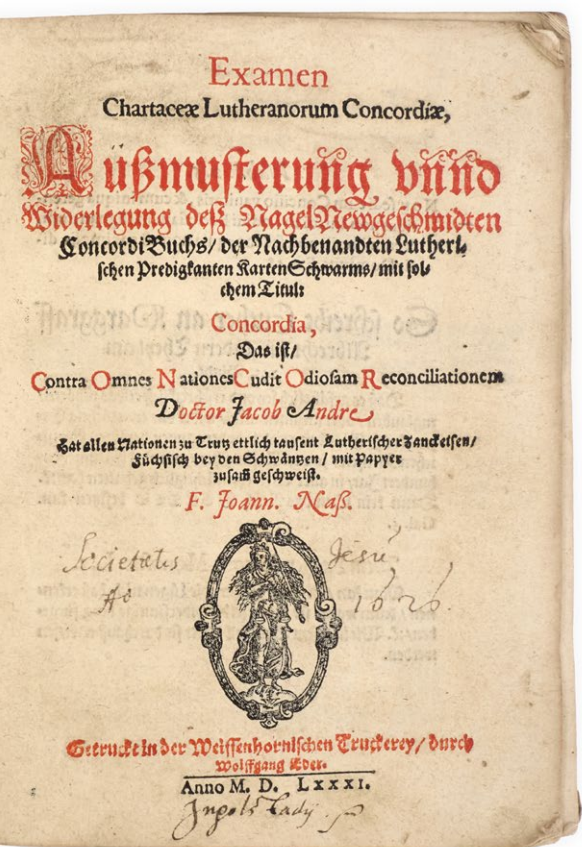 Examen
Chartaceæ Lutheranorum Concordiæ,
Außmusterung vnnd
Widerlegung deß NagelNewgeschmidten
ConcordiBuchs/ der Nachbenandten Lutheri-
schen Predigkanten KartenSchwarms/ mit sol-
chem Titul:
Concordia,
Das ist/
Contra Omnes Nationes Cudit Odiosam Reconciliationem
Doctor Jacob Andre
Hat allen Nationen zu Trutz ettlich tausent Lutherischer Zanckeisen/
Füchsisch bey den Schwäntzen/ mit Papyer
zusam̃ geschweist.
F. Joann. Naß.
Societatis Jesu
Aº 1626.
Getruckt in der Weissenhornischen Truckerey/ durch
Wolffgang Eder.
Anno M. D. LXXXI.